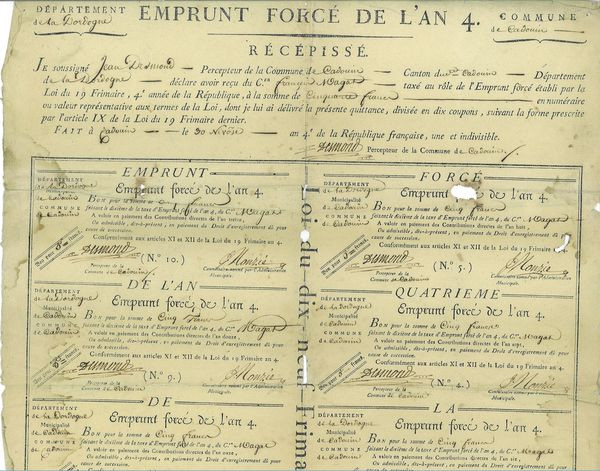 DÉPARTEMENT
de la Dordogne
EMPRUNT FORCÉ DE L'AN 4.
COMMUNE
de Cadouin
RÉCÉPISSÉ.
JE soussigné Jean Desmond Percepteur de la Commune de Cadouin Canton de Cadouin Département
de la Dordogne déclare avoir reçu du C.en françois Magat taxé au rôle de l'Emprunt forcé établi par la
Loi du 19 Frimaire, 4e année de la République, à la somme de Cinquante francs en numéraire
ou valeur représentative aux termes de la Loi, dont je lui ai délivré la présente quittance, divisée en dix coupons, suivant la forme prescrite
par l'article IX de la Loi du 19 Frimaire dernier.
FAIT à Cadouin le 30 Nivôse an 4e de la République française, une et indivisible.
Desmond Percepteur de la Commune de Cadouin
EMPRUNT
DÉPARTEMENT
de la Dordogne
Municipalité
de Cadouin
COMMUNE
de Cadouin
Emprunt forcé de l'an 4.
BON pour la somme de francs
faisant le dixième de la taxe d'Emprunt forcé de l'an 4, du C.en Magat
A valoir en paiement des Contributions directes de l'an treize,
Ou admissible, dès-à-présent, en paiement de Droit d'enregistrement dû pour
cause de succession.
Conformément aux articles XI et XII de la Loi du 19 Frimaire an 4.
Bon pour 5 francs
Desmond
(N.° 10.)
Monzie
Percepteur de la
Commune de Cadouin
Commissaire nommé par l'Administration
Municipale.
FORCÉ
DÉPARTEMENT
de la Dordogne
Municipalité
de Cadouin
COMMUNE
de Cadouin
Emprunt forcé de l'an 4.
BON pour la somme de Cinq francs
faisant le dixième de la taxe d'Emprunt forcé de l'an 4, du C.en Magat
A valoir en paiement des Contributions directes de l'an huit,
Ou admissible, dès-à-présent, en paiement de Droit d'enregistrement dû pour
cause de succession.
Conformément aux articles XI et XII de la Loi du 19 Frimaire an 4.
Bon pour 5 francs
Desmond
(N.° 5.)
Monzie
Percepteur de la
Commune de Cadouin
Commissaire nommé par l'Administration
Municipale.
Loi du dix-neuf Frima
DE L'AN
DÉPARTEMENT
de la Dordogne
Municipalité
de Cadouin
COMMUNE
de Cadouin
Emprunt forcé de l'an 4.
BON pour la somme de Cinq francs
faisant le dixième de la taxe d'Emprunt forcé de l'an 4, du C.en Magat
A valoir en paiement des Contributions directes de l'an douze,
Ou admissible, dès-à-présent, en paiement de Droit d'enregistrement dû pour
cause de succession.
Conformément aux articles XI et XII de la Loi du 19 Frimaire an 4.
Bon pour 5 francs
Desmond
(N.° 9.)
Monzie
Percepteur de la
Commune de Cadouin
Commissaire nommé par l'Administration
Municipale.
QUATRIEME
DÉPARTEMENT
de la Dordogne
Municipalité
de Cadouin
COMMUNE
de Cadouin
Emprunt forcé de l'an 4.
BON pour la somme de Cinq francs
faisant le dixième de la taxe d'Emprunt forcé de l'an 4, du C.en Magat
A valoir en paiement des Contributions directes de l'an sept,
Ou admissible, dès-à-présent, en paiement de Droit d'enregistrement dû pour
cause de succession.
Conformément aux articles XI et XII de la Loi du 19 Frimaire an 4.
Bon pour 5 francs
Desmond
(N.° 4.)
Monzie
Percepteur de la
Commune de Cadouin
Commissaire nommé par l'Administration
Municipale.
DE
DÉPARTEMENT
de la Dordogne
Municipalité
de Cadouin
COMMUNE
de Cadouin
Emprunt forcé de l'an 4.
BON pour la somme de Cinq francs
faisant le dixième de la taxe d'Emprunt forcé de l'an 4, du C.en Magat
A valoir en paiement des Contributions directes de l'an onze,
Ou admissible, dès-à-présent, en paiement de Droit d'enregistrement dû pour
cause de succession.
LA
DÉPARTEMENT
de la Dordogne
Municipalité
de Cadouin
COMMUNE
de Cadouin
Emprunt forcé de l'an 4.
BON pour la somme de Cinq francs
faisant le dixième de la taxe d'Emprunt forcé de l'an 4, du C.en Magat
A valoir en paiement des Contributions directes de l'an six,
Ou admissible, dès-à-présent, en paiement de Droit d'enregistrement dû pour
cause de succession.